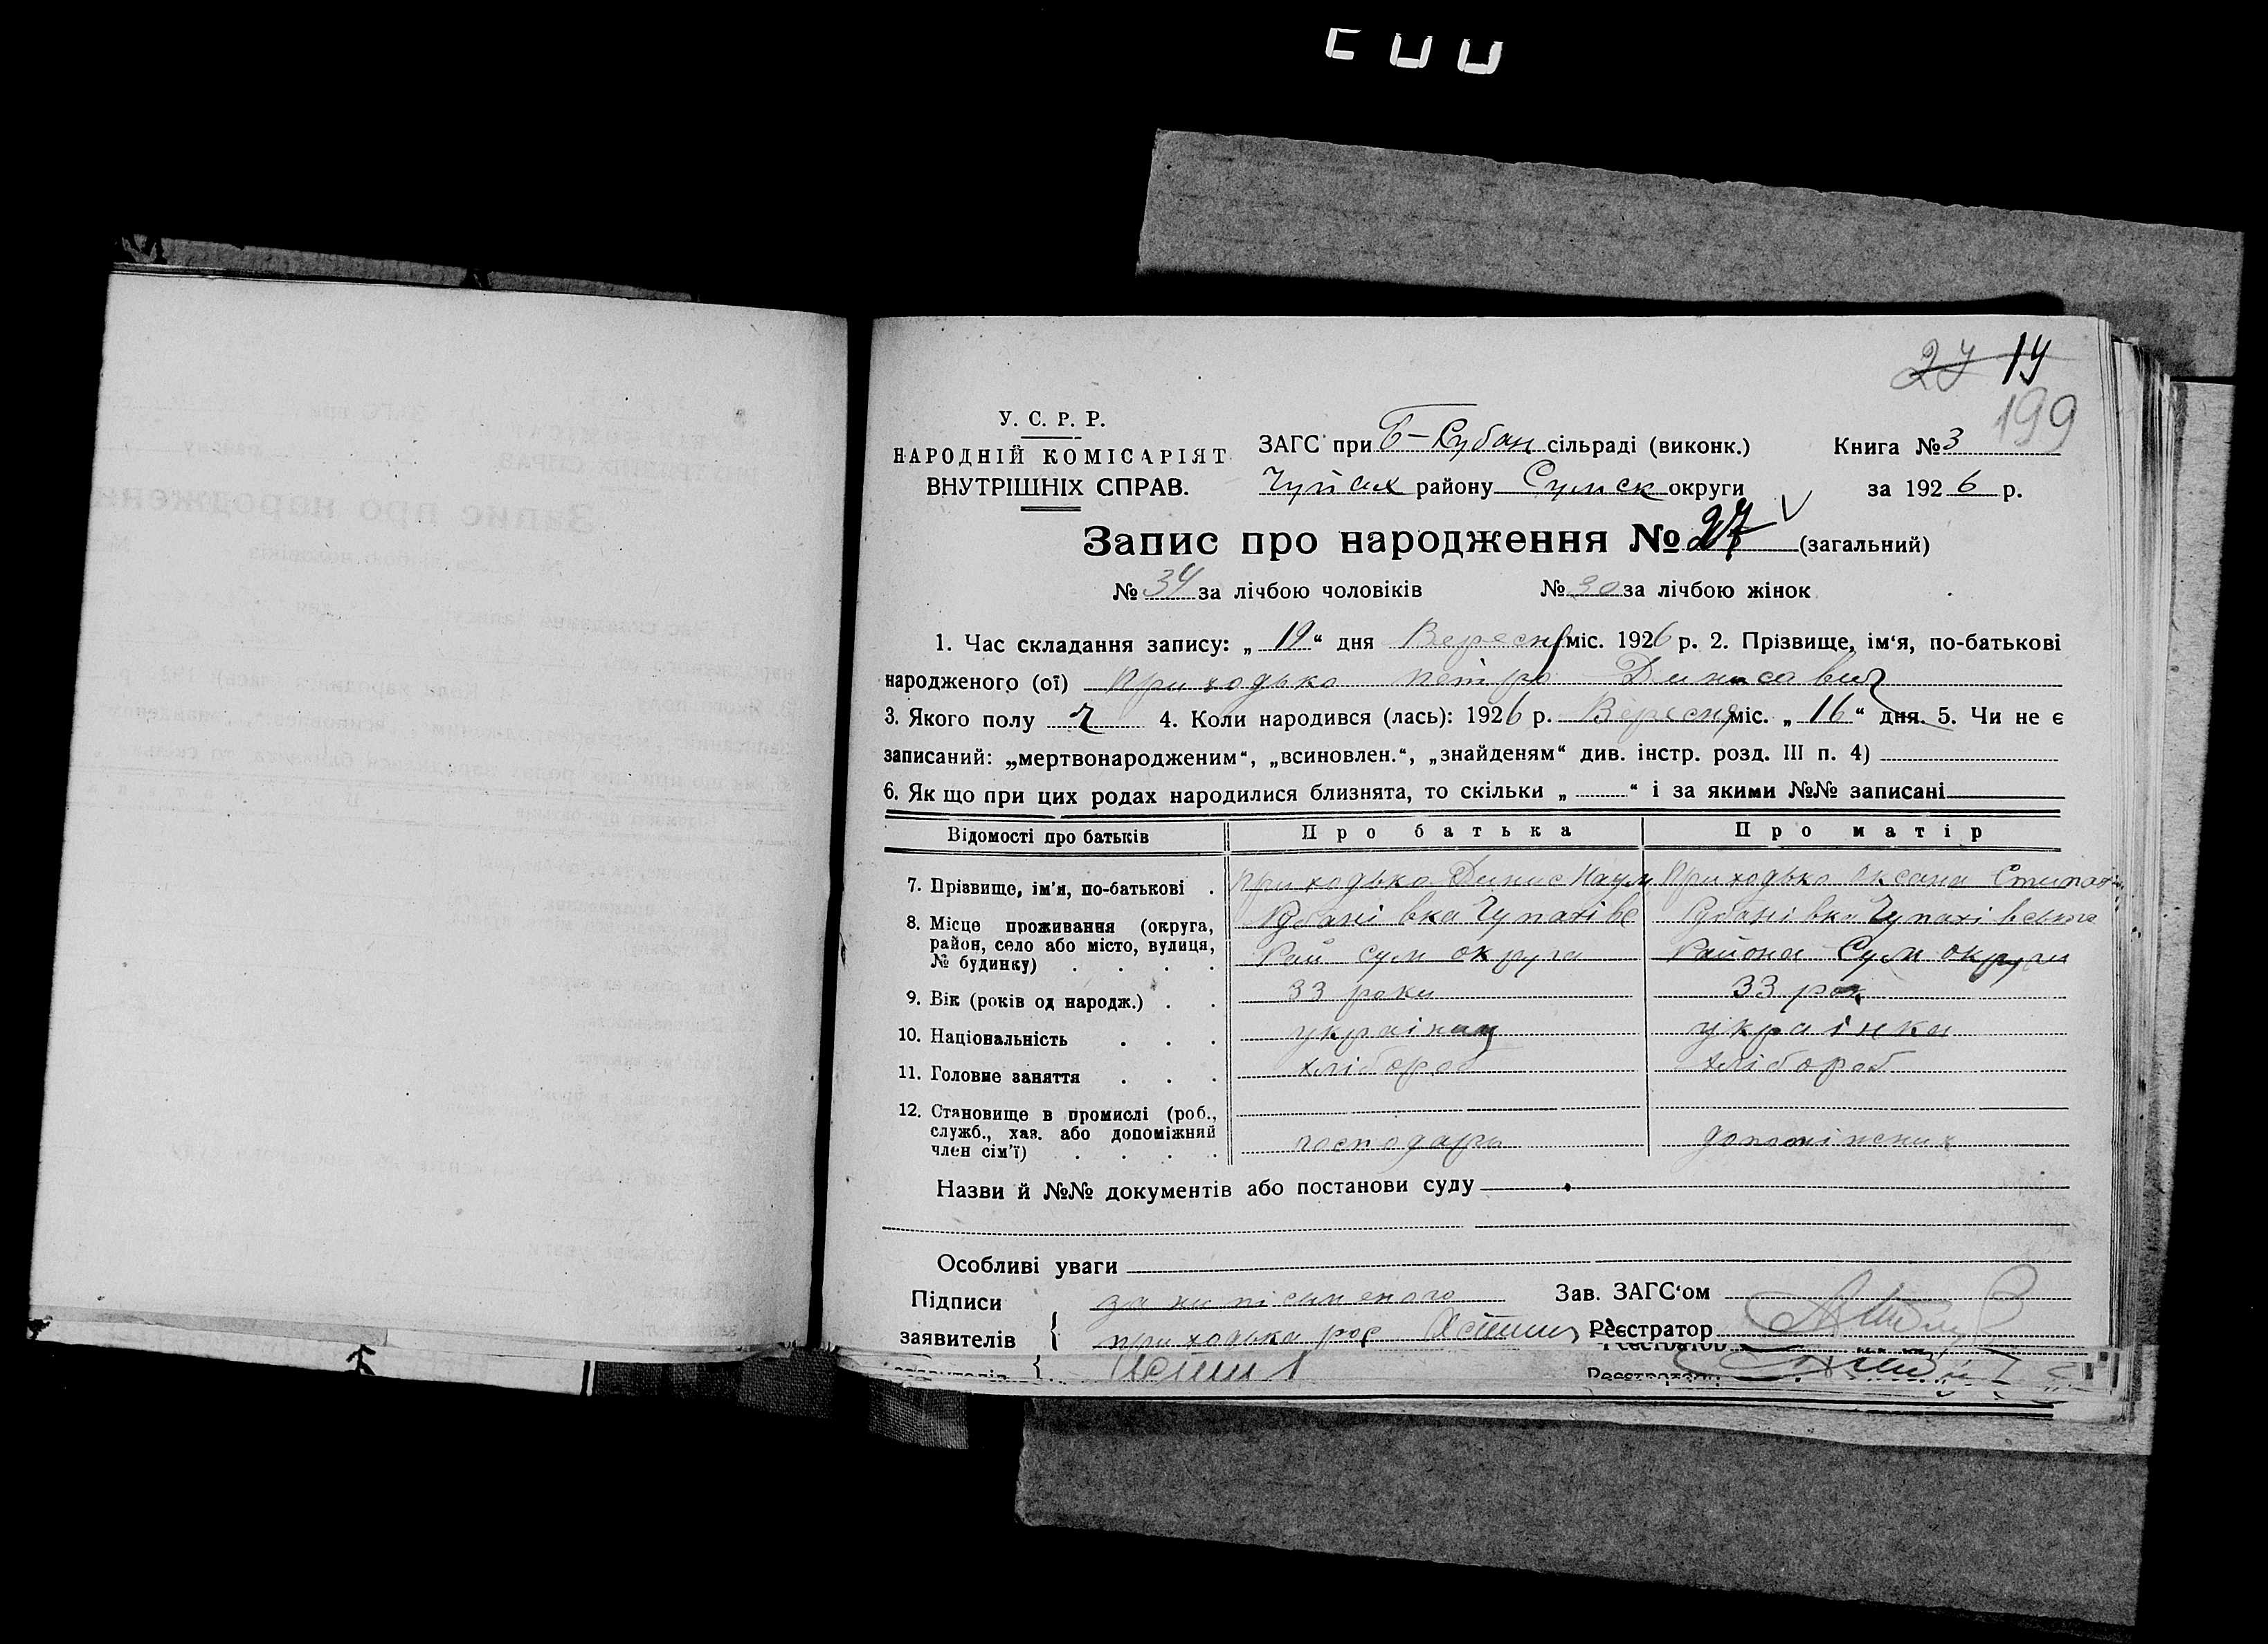 27 14
199
У. С. Р. Р.
НАРОДНІЙ КОМІСАРІЯТ
ВНУТРІШНІХ СПРАВ.
ЗАГС при Б-Рубан сільраді (виконк.) Книга № 3
Чупах району Сумск округи за 1926 р.
Запис про народження № 27 (загальний)
№ 34 за лічбою чоловіків № 30 за лічбою жінок
1. Час складання запису: „19“ дня Вересня міс. 1926 р. 2. Прізвище, ім‘я, по-батькові
народженого (ої) Приходько Петро Динисович
3. Якого полу Ч 4. Коли народився (лась): 1926 р. Вересня міс. „16“ дня. 5. Чи не є
записаний: „мертвонародженим“, „всиновлен.“, „знайденям“ див. інстр. розд. III п. 4)
6. Як що при цих родах народилися близнята, то скільки „ “ і за якими №№ записані
Відомості про батьків Про батька Про матір
7. Прізвище, ім'я, по-батькові . Приходько Динис Наум Приходько Оксана
8. Місце проживання (округа, район, село або місто, вулиця, № будинку) . . . . Рубанівка Чупахівс Рай Сум округа Рубанівка Чупахівського Района Сум округи
9. Вік (років од народж.) . . 33 роки 33 рок
10. Національність . . . українец українка
11. Головне заняття . . . хлібороб хлібороб
12. Становище в промислі (роб., служб., хаз. або допоміжний член сім'ї) . . . . господарь
Назви й №№ документів або постанови суду
Особливі уваги
Підписи за ни писменого Зав. ЗАГС‘ом
заявителів { Приходька рос Реєстратор
Реєстратор
заявителів { Реєстратор